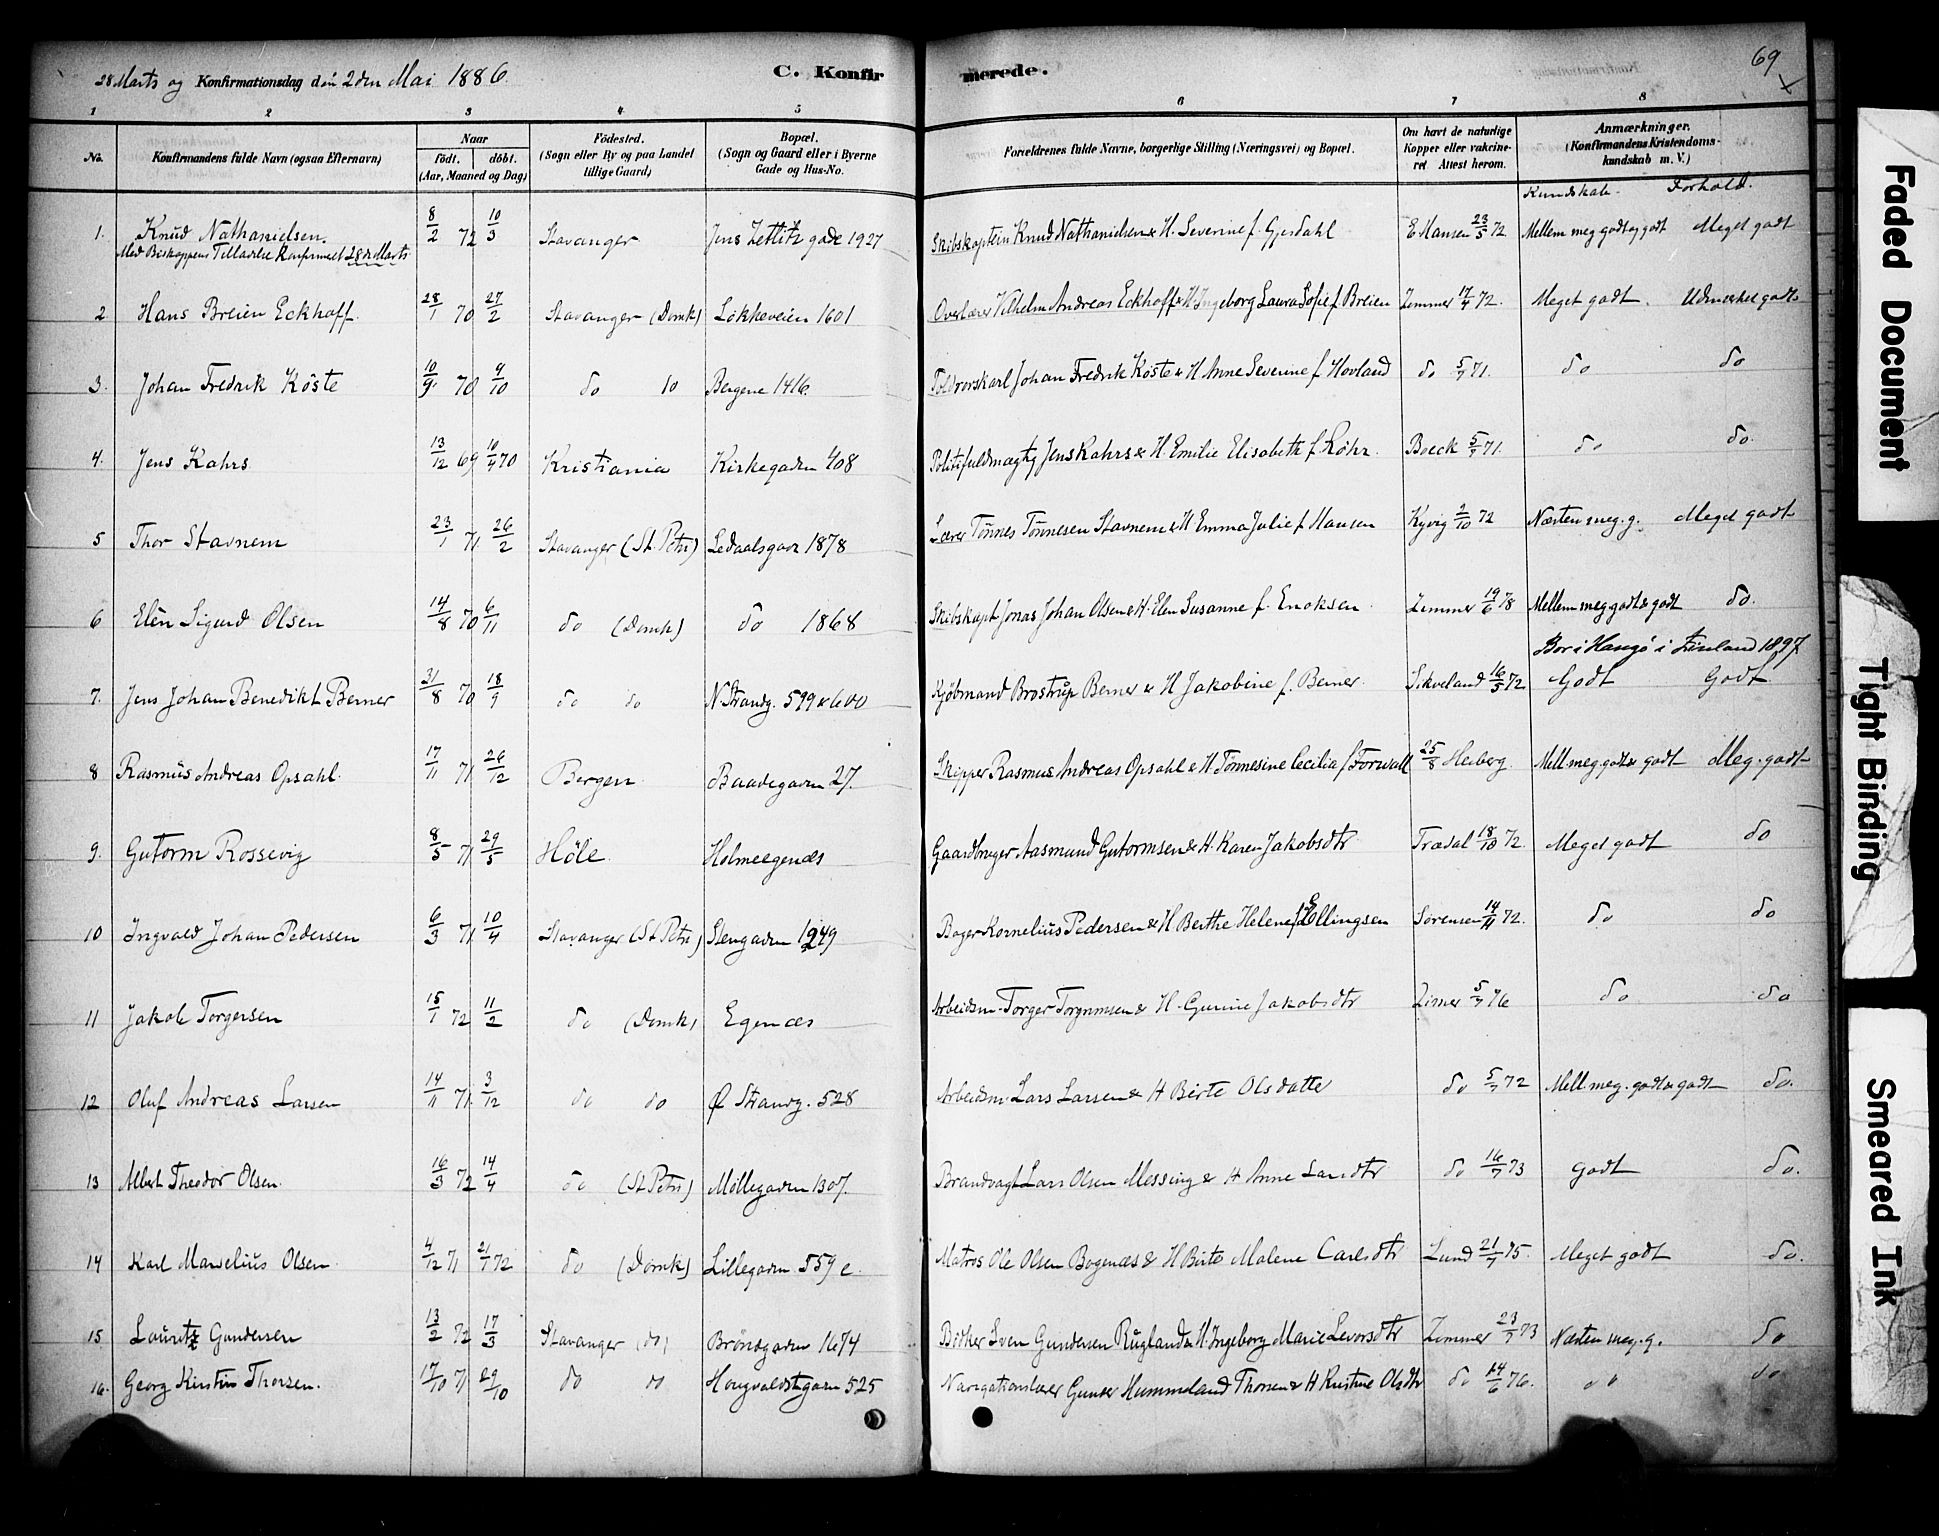 28 Marts og Konfirmationsdag den 2den Mai 1886.
C. Konfirmerede.
69
1 2 3 4 5 6 7 8
No. Konfirmandens fulde Navn (ogsaa Efternavn) Naar födt. döbt. (Aar, Maaned og Dag) Födested. (Sogn eller By og paa Landet tillige Gaard) Bopæl. (Sogn og Gaard eller i Byerne Gade og Hus-No. Forældrenes fulde Navne, borgerlige Stilling (Næringsvei) og Bopæl. Om havt de naturlige Kopper eller vakcineret Attest herom. Anmærkninger. (Konfirmandens Kristendomskundskab m. V.)
Kundskab. Forhold.
1. Knud Nathanielsen. 8/2 72 10/3 Stavanger Jens Zetlitz gade 1927 Skibskaptein Knud Nathanielsen & H. Severine f. Gjesdahl E Hansen 23/5 72 Mellem meg godt og godt Meget godt
Med Biskoppens Tilladelse Konfirmeret 28de Marts
2 Hans Breien Eckhoff. 28/1 70 27/2 Stavanger (Domk) Lökkeveien 1601 Overlærer Vilhelm Andreas Eckhoff & H. Ingeborg Laura Sofie f. Breien Zemmer 17/4 72. Meget godt. Udmærket godt
3. Johan Fredrik Köste 10/9 70 9/10 do do Bergene 1416. Johan Fredrik Köste & H Anne Severine f. Hovland do 5/7 71. do do
4. Jens Kahrs 13/12 69 10/4 70 Kristiania Kirkegaden 408 Politifuldmægtig Jens Kahrs & H. Emilie Elisabeth f. Röhr. Boeck 5/7 71. do do.
5 Thor Stavnem 23/1 71. 26/2 Stavanger (St. Petri) Ledaalsgaden 1878 Lærer Tönnes Tönnesen Stavnem & H Emma Julie f. Hansen Kyvig 2/10 72 Næsten meg. g. Meget godt
6 Elen Sigurd Olsen 14/8 70 6/11 do (Domk) do 1868 Skibskapt Jonas Johan Olsen & H. Elen Susanne f. Enoksen Zemmer 19/6 78 Mellem meg godt & godt do.
Bor i Hangö i Finland 1897
7. Jens Johan Benedikt Berner 31/8 70 18/9 do do N Strandg. 599 & 600 Kjöbmand Broström Berner & H Jakobine f. Berner. Sikveland 16/5 72 Godt Godt
8 Rasmus Andreas Opsahl. 17/11 71. 26/12 Bergen Baadegaden 27. Skipper Rasmus Andreas Opsahl & H Tönnesine Cecilia f. Forwall 25/8 Heiberg. Mell. meg. godt & godt Meg. godt
9. Gutorm Rossevig 8/5 71. 29/5 Höle. Holmeegenæs Gaardbruger Aasmund Gutormsen & H. Karen Jakobsdtr Trædal 18/10 72. Meget godt do
10 Ingvald Johan Pedersen 6/3 71. 10/4 Stavanger (St Petri) Stengaden 1249 Bager Kornelius Pedersen & H Berthe Helene f. Ellingsen Sörensen 14/11 72. do do
11 Jakob Torgersen 15/1 72 11/2 do (Domk) Egenæs Arbeidsm. Torger Torgrimsen & H. Gurine Jakobsdtr Zimer 5/7 76 do do
12 Oluf Andreas Larsen 14/11 71. 3/12 do do Ø Strandg. 528 Arbeidsm Lars Larsen & H Birte Olsdatter do 5/7 72 Mell. meg. godt & godt do.
13 Albert Theodor Olsen. 16/3 72 14/4 do (St Petri) Möllegaden 1307. Brandvagt Lars Olsen Messing & H Anne Larsdtr do 16/7 73 godt do.
14 Karl Marselius Olsen 4/12 71 21/1 72 do (Domk) Lillegaden 559 c. Matros Ole Olsen Bogenæs & H Birte Malene Carlsdtr Lund 21/7 75. Meget godt do.
15 Lauritz Gundersen 13/2 72 17/3 Stavanger (do) Bröndgaden 1674 Bödker Sven Gundersen Rugland & H. Ingeborg Marie Levorsdtr Zemmer 23/7 73 Næsten meg. g. do
16. Georg Kirstin Thorsen. 17/10 71 29/10 do do Hougvaldstgaden 525 Navigationslærer Gunder Hummeland Thorsen & H Kristine Olsdtr do 14/6 76. " do
Faded Document
Tight Binding
Smeared Ink